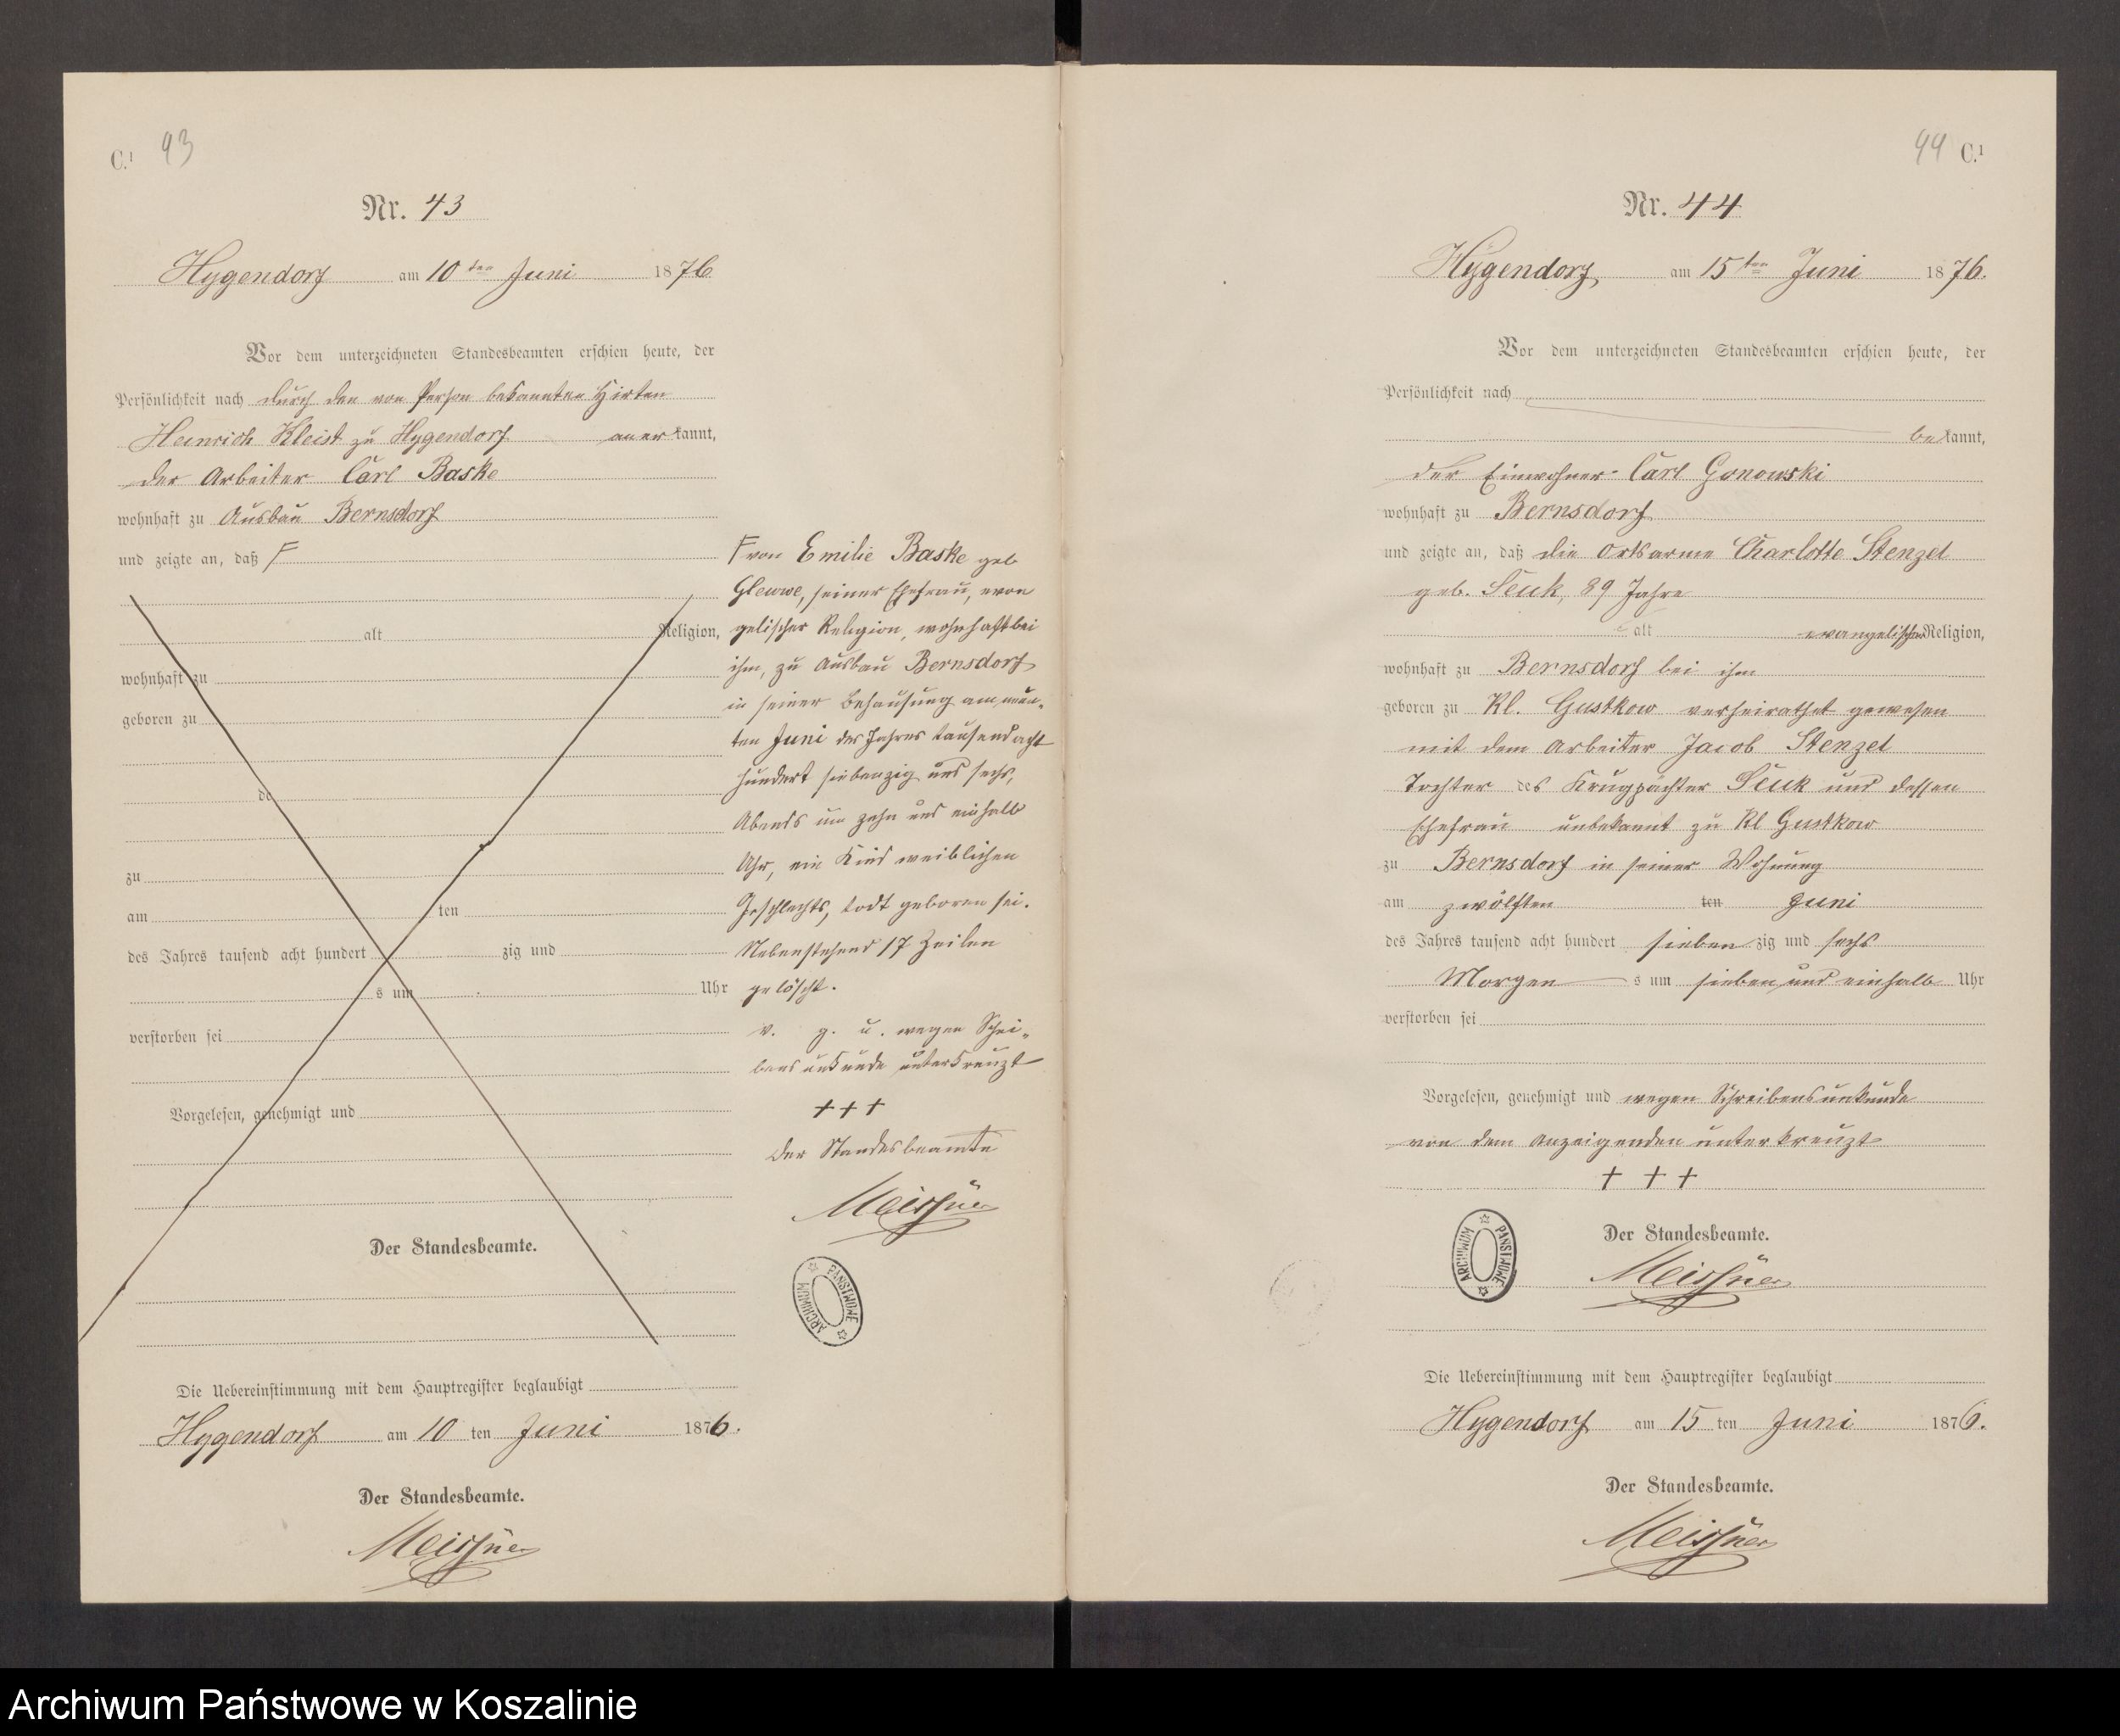 C.¹ 43
Nr. 43
Hygendorf am 10ten Juni 1876
Vor dem unterzeichneten Standesbeamten erschien heute, der
Persönlichkeit nach durch den von Person bekannten Hirten
Heinrich Kleist zu Hygendorf anerkannt,
der Arbeiter Carl Baske
wohnhaft zu Ausbau Bernsdorf
und zeigte an, daß
alt Religion,
wohnhaft zu
geboren zu
de
zu
am ten
des Jahres tausend acht hundert zig und
s um Uhr
verstorben sei
Vorgelesen, genehmigt und
Der Standesbeamte.
von Emilie Baske geb
Glewwe, seiner Ehefrau, evan
gelischer Religion, wohnhaft bei
ihm, zu Ausbau Bernsdorf
in seiner Behausung am neun-
ten Juni des Jahres tausend acht
hundert siebenzig und sechs,
Abends um zehn und einhalb
Uhr, ein Kind weiblichen
Geschlechts, todt geboren sei.
Nebenstehend 17 Zeilen
gelöscht.
v. g. u. wegen Schrei-
bensunkunde unterkreuzt
+++
Der Standesbeamte
Meissner
ARCHIWUM PAŃSTWOWE
Die Uebereinstimmung mit dem Hauptregister beglaubigt
Hygendorf am 10 ten Juni 1876.
Der Standesbeamte.
Meissner
44 C.¹
Nr. 44
Hygendorf, am 15ten Juni 1876.
Vor dem unterzeichneten Standesbeamten erschien heute, der
Persönlichkeit nach
bekannt,
der Einwohner Carl Gonowski
wohnhaft zu Bernsdorf
und zeigte an, daß die Ortsarme Charlotte Stenzel
geb. 89 Jahre
alt evangelischer Religion,
wohnhaft zu Bernsdorf bei ihm
geboren zu Kl. Gustkow verheirathet gewesen
mit dem Arbeiter Jacob Stenzel
Tochter des Krugpächter und dessen
Ehefrau unbekannt zu Kl Gustkow
zu Bernsdorf in seiner Wohnung
am zwölften ten Juni
des Jahres tausend acht hundert sieben zig und sechs
Morgen s um sieben und einhalb Uhr
verstorben sei
Vorgelesen, genehmigt und wegen Schreibensunkunde
von dem Anzeigenden unterkreuzt
+ + +
Der Standesbeamte.
Meissner
ARCHIWUM PAŃSTWOWE
Die Uebereinstimmung mit dem Hauptregister beglaubigt
Hygendorf am 15 ten Juni 1876.
Der Standesbeamte.
Meissner
Archiwum Państwowe w Koszalinie